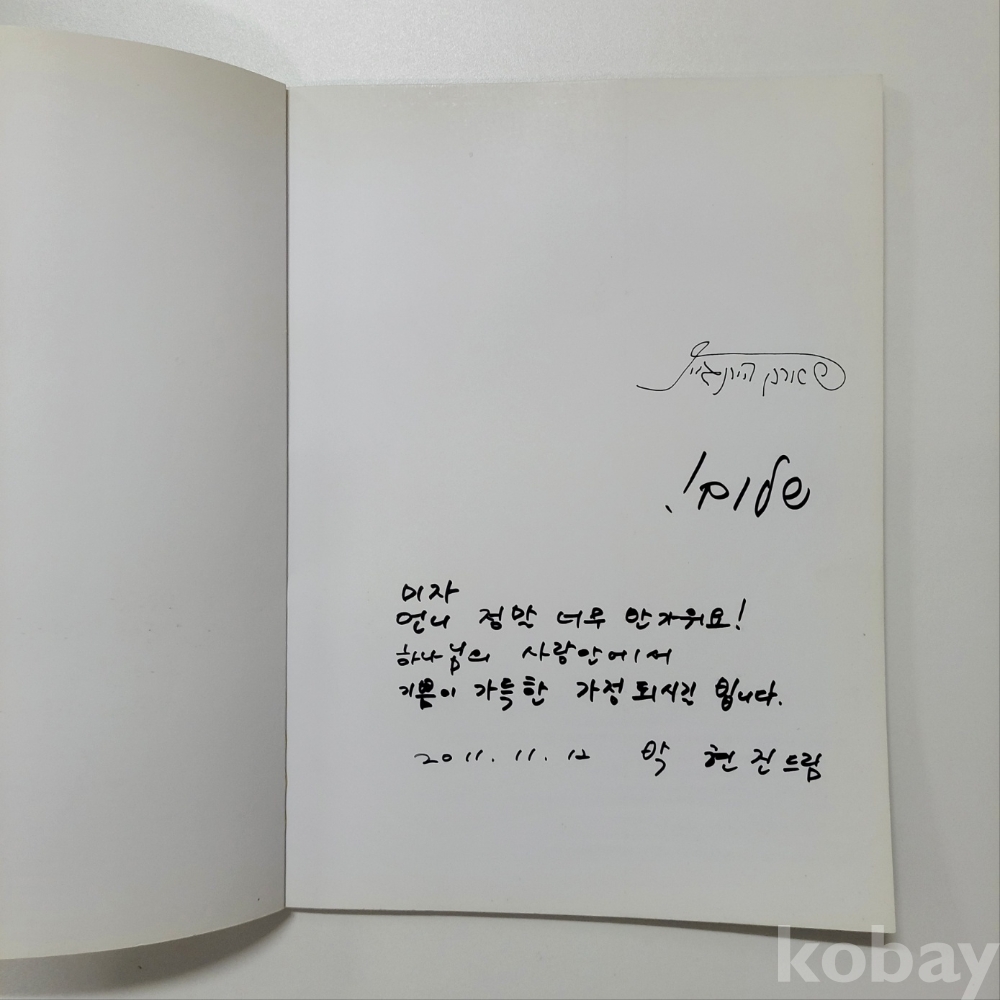 שלום!
미자
언니 정말 너무 반가워요!
하나님의 사랑안에서
기쁨이 가득한 가정 되시길 빕니다.
2011. 11. 12 박 현진드림
kobay